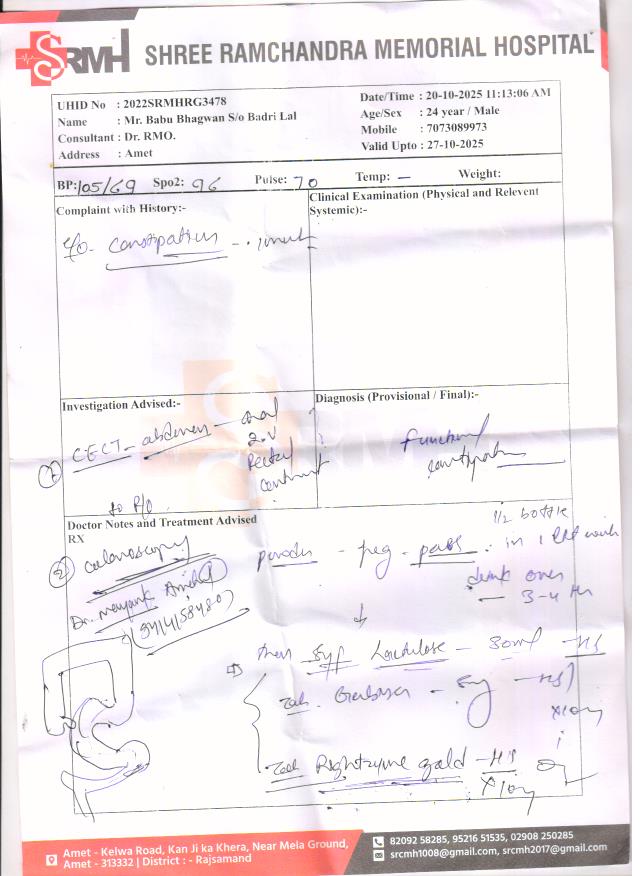 SRMH SHREE RAMCHANDRA MEMORIAL HOSPITAL
UHID No : 2022SRMHRG3478
Name : Mr. Babu Bhagwan S/o Badri Lal
Consultant : Dr. RMO.
Address : Amet
Date/Time : 20-10-2025 11:13:06 AM
Age/Sex : 24 year / Male
Mobile : 7073089973
Valid Upto : 27-10-2025
BP: 105/69 Spo2: 96 Pulse: 70 Temp: — Weight:
Complaint with History:-
c/o. Constipation
Clinical Examination (Physical and Relevent
Systemic):-
Investigation Advised:-
① CECT - abdomen - oral
Rectal
contrast
to R/o
Diagnosis (Provisional / Final):-
functional
constipation
Doctor Notes and Treatment Advised
RX
② colonoscopy
Dr. mayank
powder - peg -
1/2 bottle
in 1
drink over
3-4 Hr
then Syp Lactulose - 30ml - HS
Tab. - HS
Tab Rightzyme gold - HS
Amet - Kelwa Road, Kan Ji ka Khera, Near Mela Ground,
Amet - 313332 | District : - Rajsamand
82092 58285, 95216 51535, 02908 250285
srcmh1008@gmail.com, srcmh2017@gmail.com